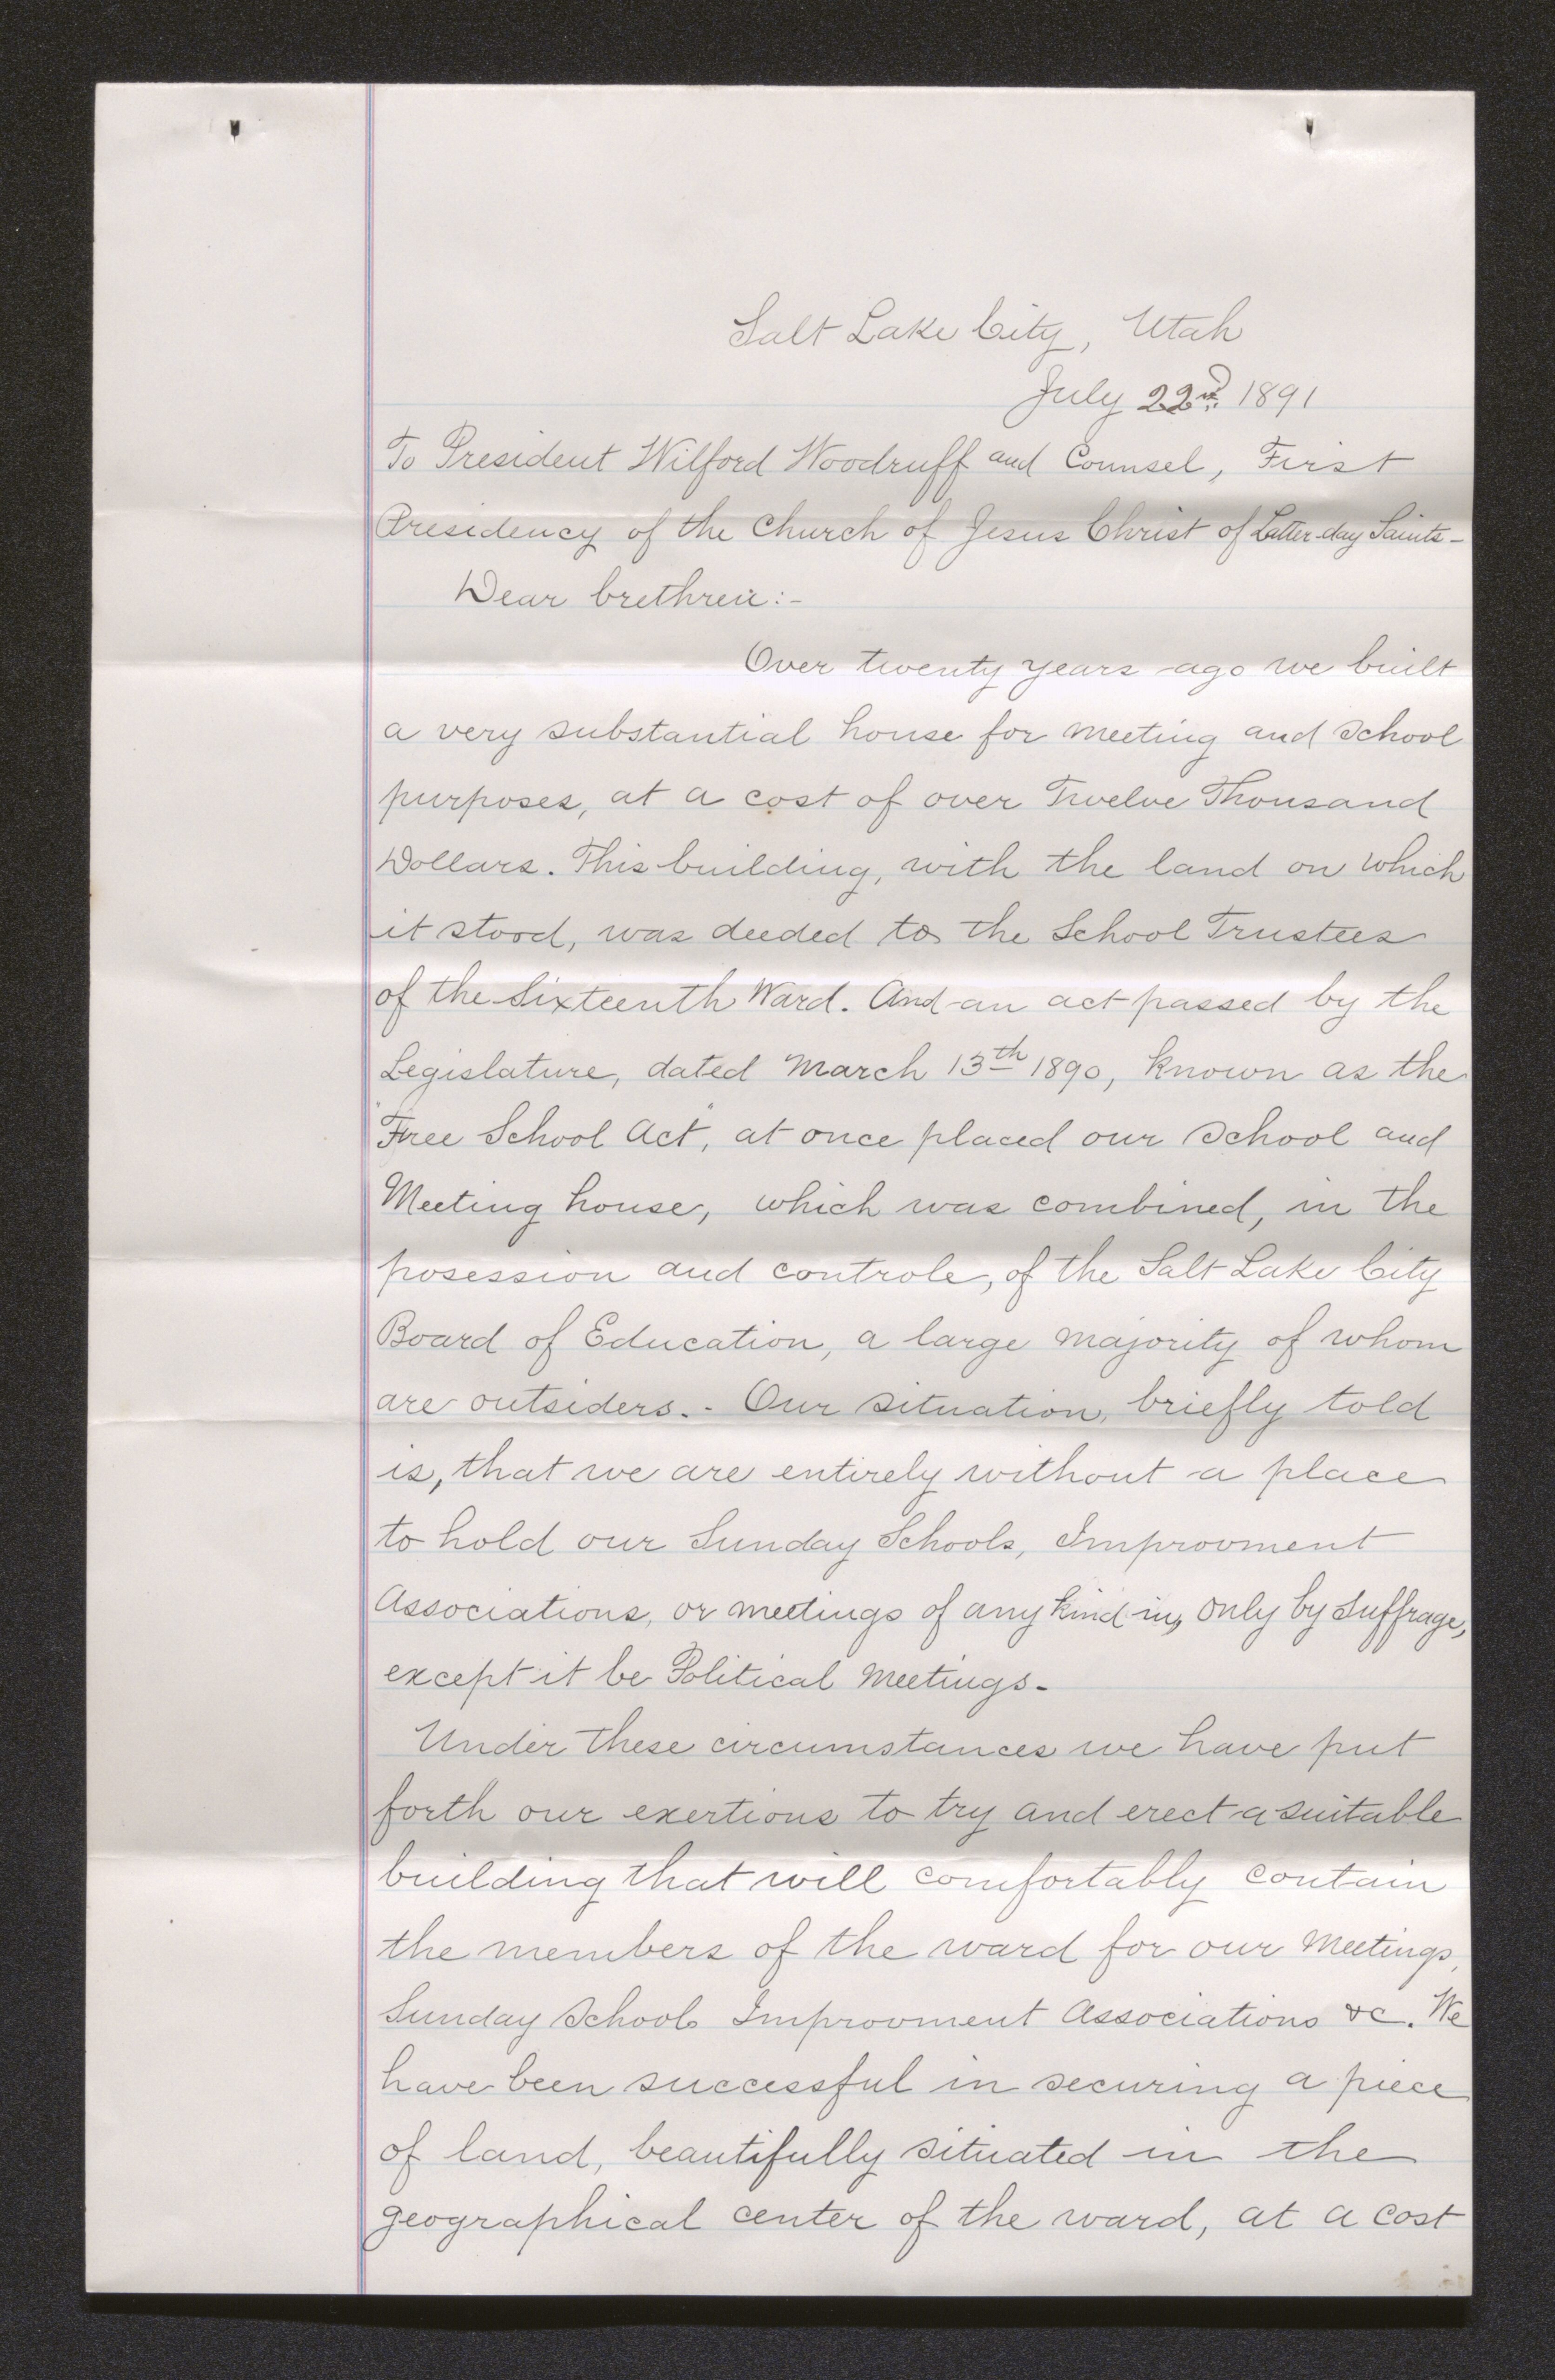 Salt Lake City, Utah
July 22nd. 1891
To President Wilford Woodruff and Counsel, First
Presidency of the Church of Jesus Christ of Latter-day Saints-
Dear brethren:-
Over twenty years ago we built
a very substantial house for meeting and school
purposes, at a cost of over Twelve Thousand
Dollars. This building, with the land on which
it stood, was deeded to the School Trustees
of the Sixteenth Ward. And an act passed by the
Legislature, dated March 13th 1890, known as the
"Free School Act", at once placed our School and
Meeting house, which was combined, in the
posession and controle, of the Salt Lake City
Board of Education, a large majority of whom
are outsiders.- Our situation, briefly told
is, that we are entirely without a place
to hold our Sunday Schools, Improvment
Associations, or meetings of any kind in, only by Suffrage,
except it be Political Meetings-
Under these circumstances we have put
forth our exertions to try and erect a suitable
building that will comfortably contain
the members of the ward for our Meetings,
Sunday Schools Improvment Associations &c. We
have been successful in securing a piece
of land, beautifully situated in the
geographical center of the ward, at a cost